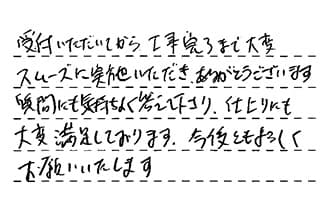 受付いただいてから工事完了まで大変
スムーズに実施いただき、ありがとうございます
質問にも気持ちよく答えて下さり、仕上りにも
大変満足しております。今後ともよろしく
お願いいたします